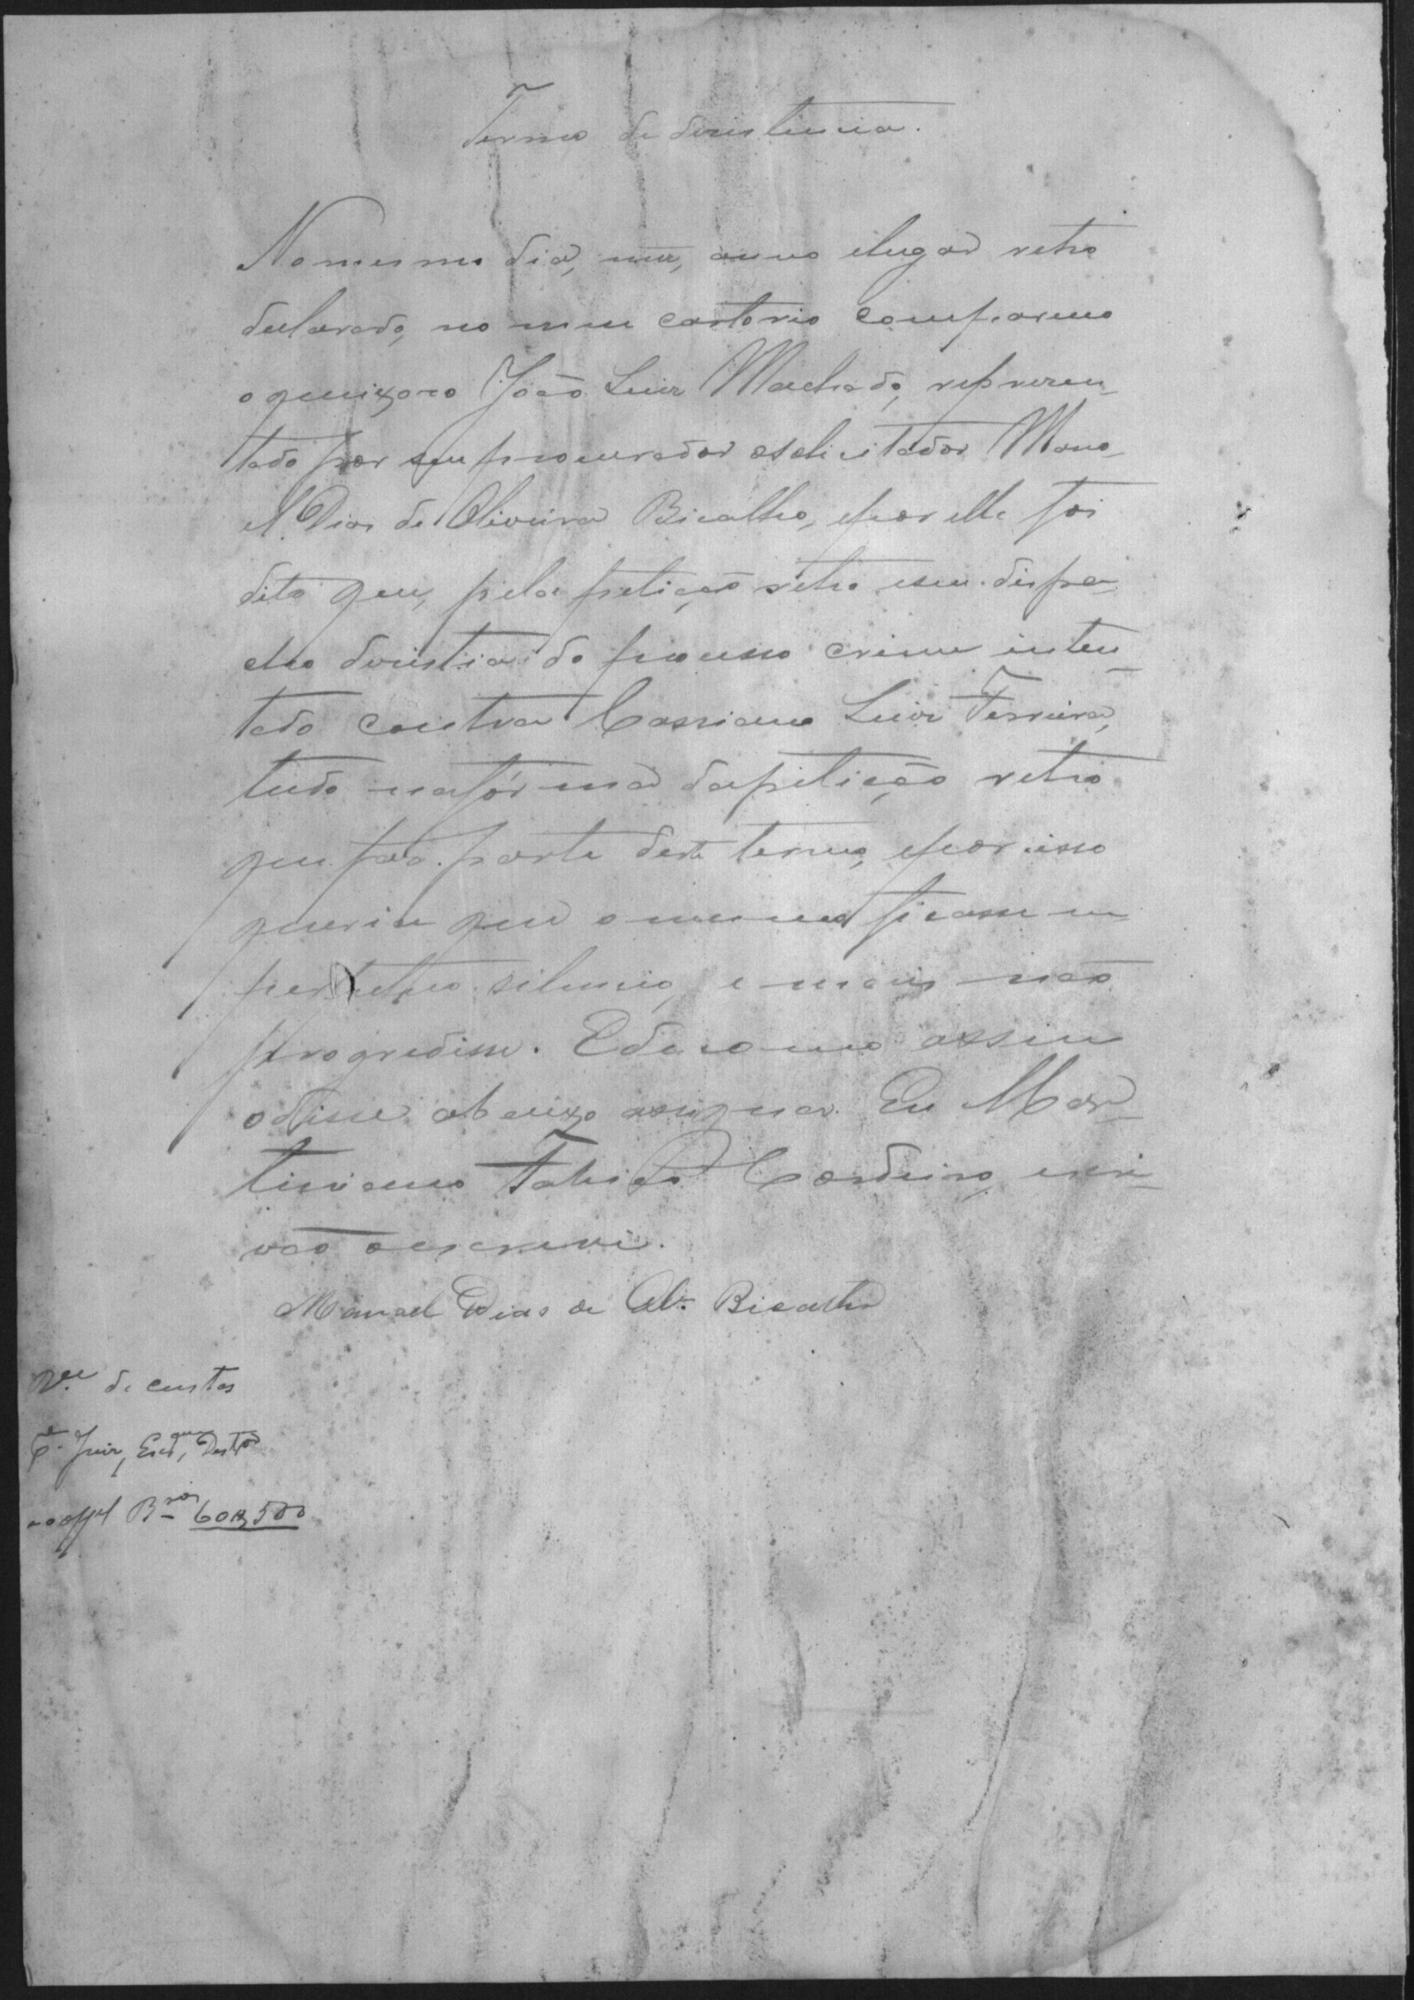 Termo de desistencia.
No mesmo dia, mez, anno e lugar retro
declarado, no meu cartorio compareceo
o queixozo João Luiz Machado, represen-
tado por seu procurador o solicitador Mano-
el Dias de Oliveira Bicalho, e por elle foi
dito que, pela petição retro e seu despa-
cho desistia do processo crime inten-
tado contra Cassiano Luiz Ferreira,
tudo na fórma da petição retro
que faz parte deste termo, e por isso
queria que o mesmo ficasse em
perpetuo silencio, e mais não
progredisse. E de como assim
o disse abaixo assigna. Eu Mar-
tiniano Cordeiro, escri-
vão o escrevi.
Manoel Dias de Olivª Bicalho
de custas
Juiz,
60$500